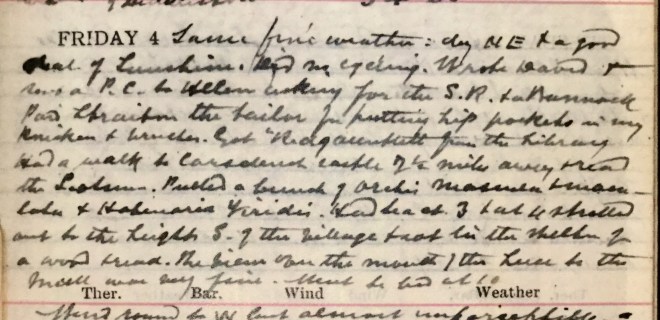 FRIDAY 4 Same fine weather: dry NE & a good
deal of Sunshine. Did no cycling. Wrote David &
a P.C. to Helen asking for the S.R. & a Bannock
Paid the tailor for putting hip pockets in my
Knickers & breeches. Got "Redgauntlet from the Library
Had a walk to Carsluith castle 7½ miles away & read
the Scotsman. Picked a bunch of orchis mascula & macu-
lata & Habenaria Viridis. Had tea at 3 & at 4 strolled
out to the heights S. of the village & sat in the shelter of
a wood & read. The view over the mouth of the to the
was very fine. Went to bed at 10
Ther. Bar. Wind Weather
Wind round to W but almost imperceptible